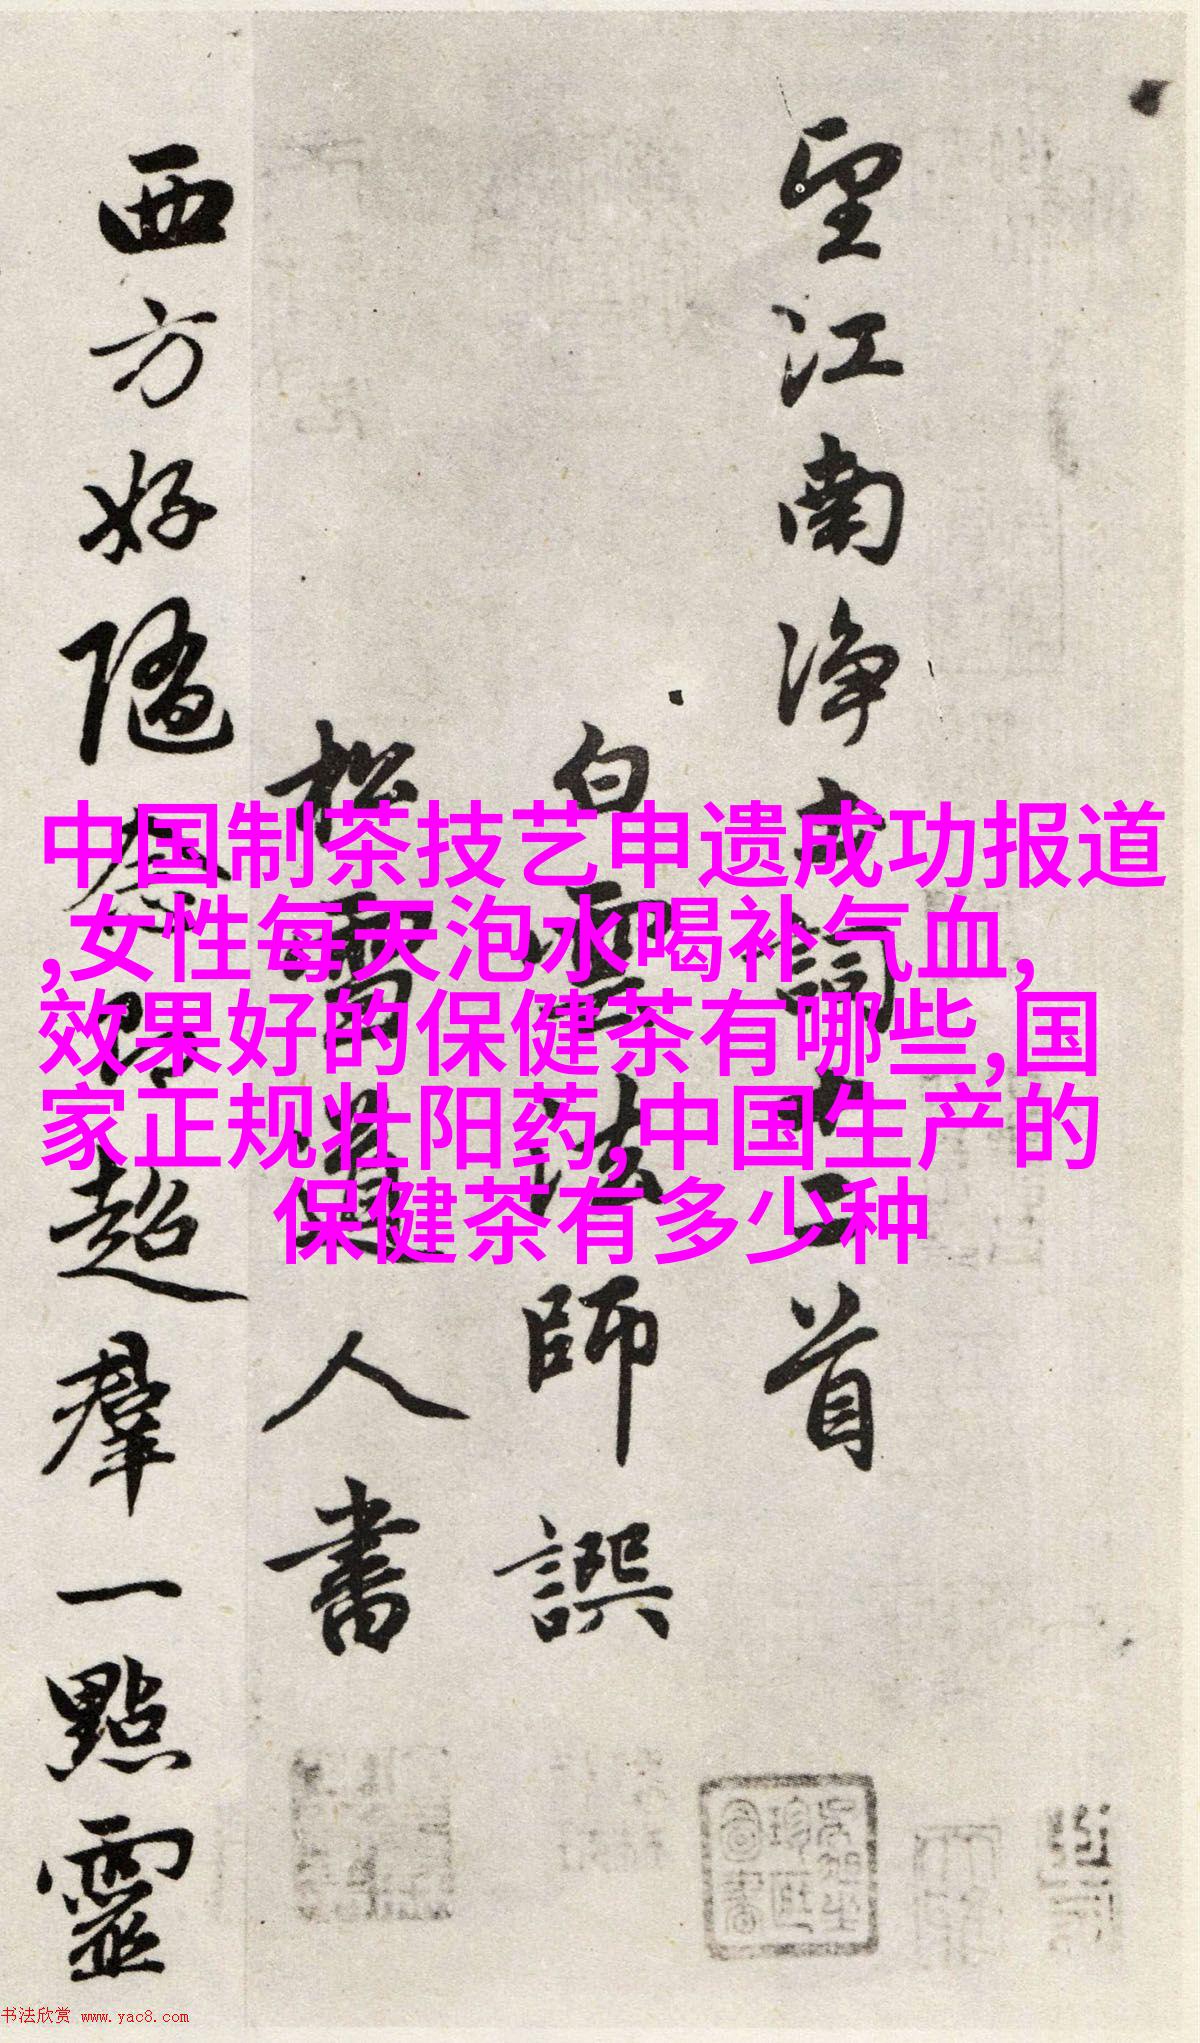 望江南净土詞十二首
白雲法師譔
松雪道人書
西方好隨念即超羣一點靈
中国制茶技艺申遗成功报道
,女性每天泡水喝补气血,
效果好的保健茶有哪些,国
家正规壮阳药,中国生产的
保健茶有多少种
书法欣赏 www.yac8.com